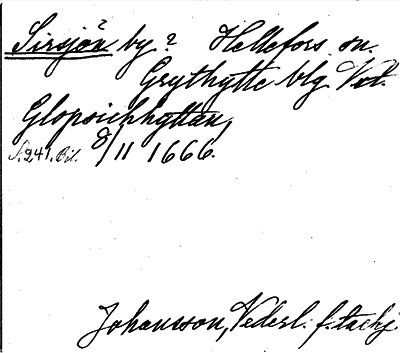 Sirsjön by? Hellefors sn.
Grythytte blg. Vet.
Glopsichhyttan,
S. 241. Bil. 8/11 1666.
Johansson, Vederl. f. tackj.